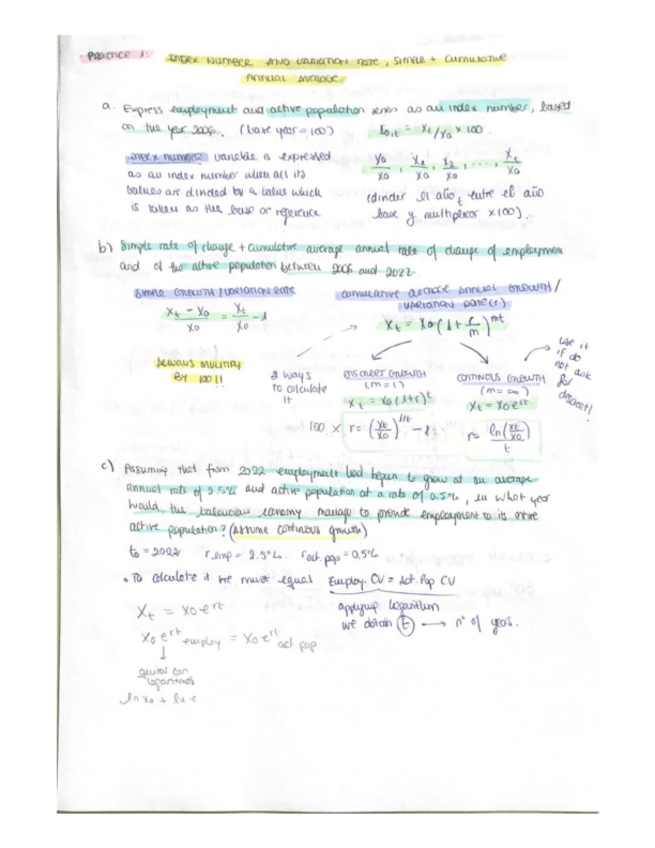 PRACTICE 1: INDEX NUMBER AND VARIATION RATE, SIMPLE + CUMULATIVE
ANNUAL AVERAGE
a. Express employment and active population series as an index number, based
on the year 2006. (base year = 100)
I0,t = Xt/X0 × 100
index number variable is expressed
as an index number when all its
values are divided by a value which
is taken as the base or reference
X0/X0, X1/X0, X2/X0, ..., Xt/X0
(dividir el año t entre el año
base y multiplicar ×100).
b) Simple rate of change + cumulative average annual rate of change of employment
and of the active population between 2006 and 2022.
SIMPLE GROWTH / VARIATION RATE
Xt - X0/X0 = Xt/X0 - 1
ALWAYS MULTIPLY
BY 100!!
CUMULATIVE AVERAGE ANNUAL GROWTH/
VARIATION RATE (r)
Xt = X0 (1 + r/m)^mt
2 ways
to calculate
it
DISCREET GROWTH
(m = 1)
Xt = X0 (1+r)^t
100 × r = (Xt/X0)^1/t - 1
CONTINOUS GROWTH
(m = ∞)
Xt = X0 e^rt
r = ln(Xt/X0)/t
use it
if do
not ask
for
discreet!
c) Assuming that from 2022 employment had begun to grow at an average
annual rate of 2.5% and active population at a rate of 0.5%, in what year
would the balearian economy manage to provide employment to its entire
active population? (Assume continous growth)
t0 = 2022 r emp = 2.5%. r act. pop = 0.5%
• To calculate it we must equal Employ. CV = Act. Pop CV
applying logarithm
we obtain t → nº of years.
Xt = X0 e^rt
X0 e^rt employ = X0 e^rt act pop
↓
quitar con
logaritmos
ln X0 + ln e